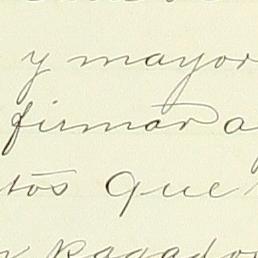 y mayor
firmar a
tos que
pagado